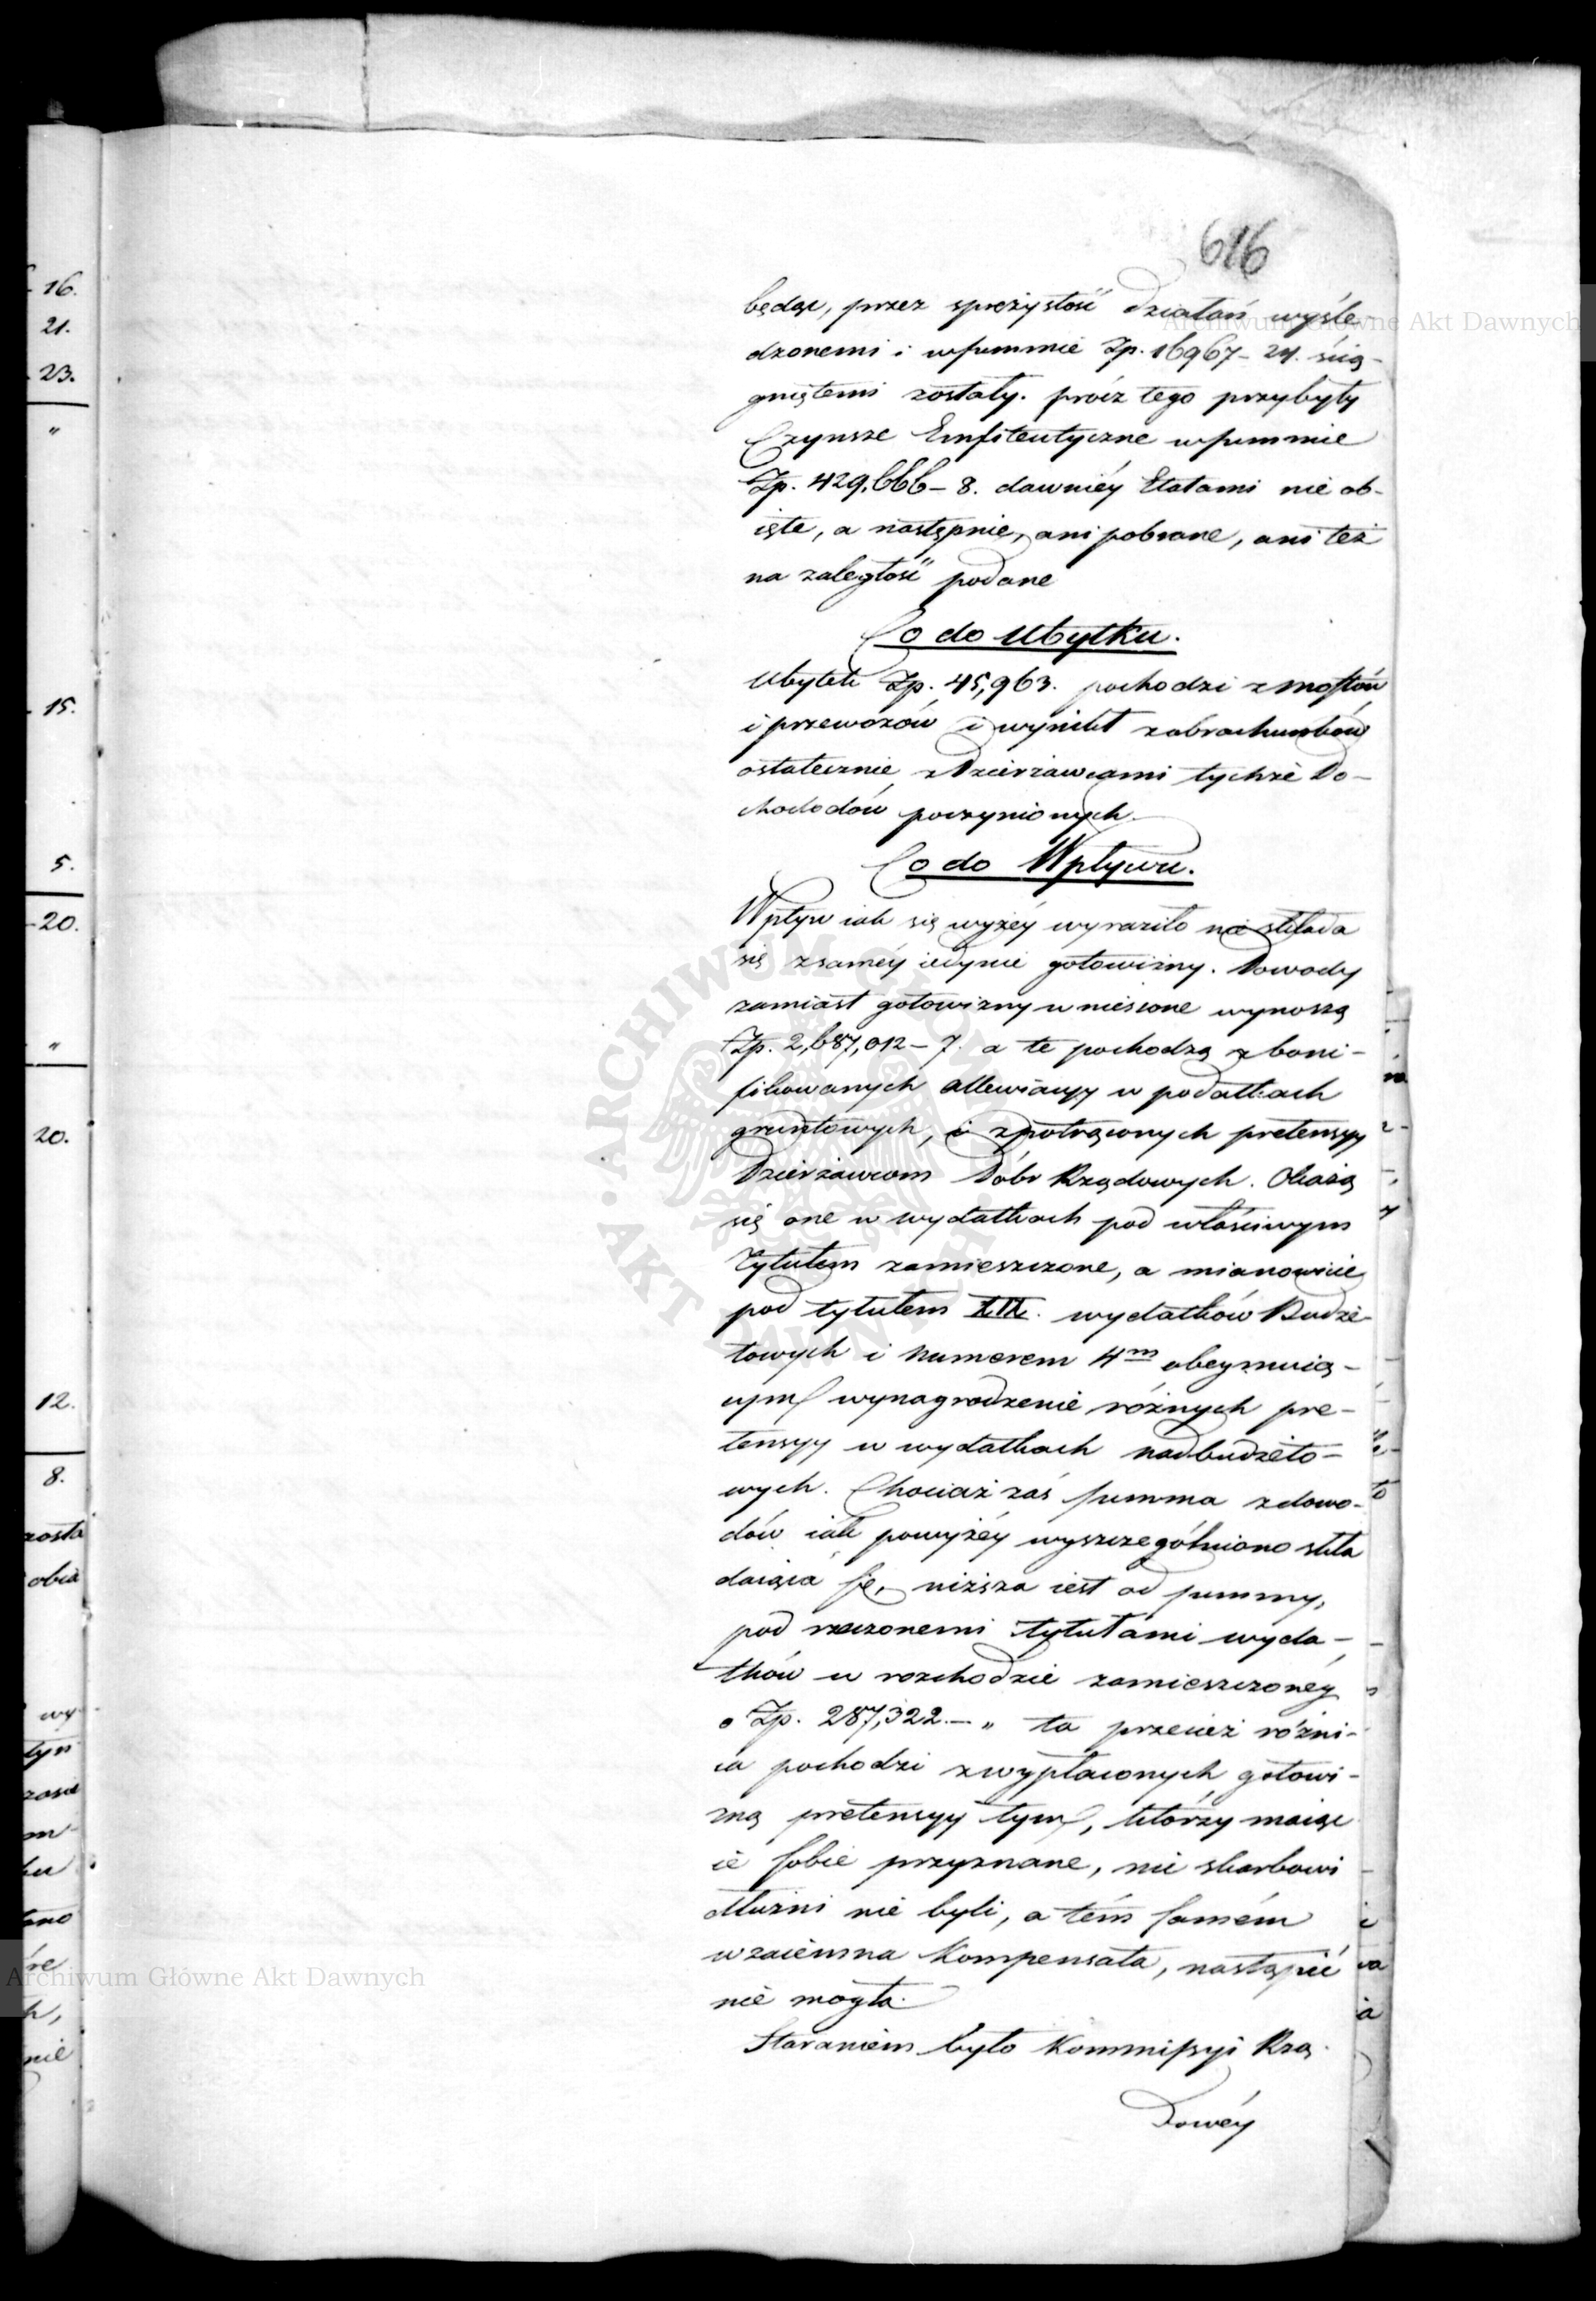 616
będąc, przez sprężystość działań wyśle-
dzonemi i w summie Zp. 16967 – 24. ścią-
gniętemi zostały. prócz tego przybyły
Czynsze Emfiteutyczne w summie
Zp. 429,666 – 8. dawniéy Etatami nie ob-
ięte, a następnie, ani pobrane, ani też
na zaległość podane
Co do Ubytku.
Ubytek Zp. 45,963. pochodzi z mostów
i przewozów i wynikł z obrachunków
ostatecznie z Dzierżawcami tychże Do-
chododów poczynionych.
Co do Wpływu.
Wpływ iak się wyżéy wyraziło nie składa
się z saméy iedynie gotowizny. Dowody
zamiast gotowizny wniesione wynoszą
Zp. 2,687,012 – 7. a te pochodzą z boni-
fikowanych allewiacyy w podatkach
gruntowych, i z potrąconych pretensyy
Dzierżawcom Dóbr Rządowych. Okażą
się one w wydatkach pod właściwym
Tytułem zamieszczone, a mianowicie
pod tytułem XIX. wydatków Budże-
towych i Numerem 4m obeymuią-
cym wynagrodzenie różnych pre-
tensyy w wydatkach nadbudżeto-
wych. Chociaż zaś summa z dowo-
dów iak powyżéy wyszczególniono skła
daiąca się, niższa iest od summy,
pod rzeczonemi tytułami wyda-
tków w rozchodzie zamieszczonéy
o Zp. 287,322. – „ ta przecież różni-
ca pochodzi z wypłaconych gotowi-
zną pretensyy tym, którzy maiąc
ie sobie przyznane, nic skarbowi
dłużni nie byli, a tém samém
wzaiemna Kompensata, nastąpić
nie mogła.
Staraniem było Kommissyi Rzą-
dowéy
16.
21.
23.
"
15.
5.
20.
"
20.
12.
8.
zosta
obia
wy-
tym
Archiwum Główne Akt Dawnych
Archiwum Główne Akt Dawnych
ARCHIWUM GŁÓWNE AKT DAWNYCH